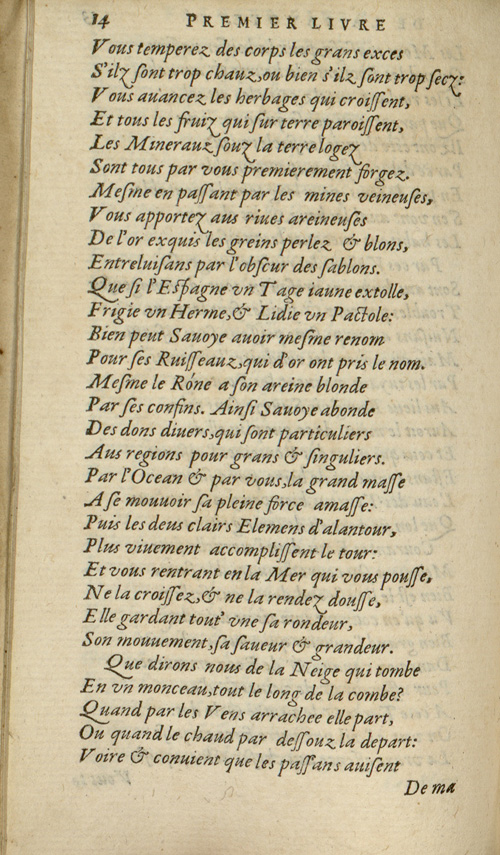 14 PREMIER LIVRE
Vous temperez des corps les grans exces
S'ilz sont trop chauz, ou bien s'ilz sont trop secz:
Vous auancez les herbages qui croissent,
Et tous les fruiz qui sur terre paroissent,
Les Minerauz souz la terre logez
Sont tous par vous premierement forgez.
Mesme en passant par les mines veineuses,
Vous apportez aus riues areineuses
De l'or exquis les greins perlez & blons,
Entreluisans par l'obscur des sablons.
Que si l'Espagne vn Tage iaune extolle,
Frigie vn Herme, & Lidie vn Pactole:
Bien peut Sauoye auoir mesme renom
Pour ses Ruisseauz, qui d'or ont pris le nom.
Mesme le Róne a son areine blonde
Par ses confins. Ainsi Sauoye abonde
Des dons diuers, qui sont particuliers
Aus regions pour grans & singuliers.
Par l'Ocean & par vous, la grand masse
A se mouuoir sa pleine force amasse:
Puis les deus clairs Elemens d'alantour,
Plus viuement accomplissent le tour:
Et vous rentrant en la Mer qui vous pousse,
Ne la croissez, & ne la rendez dousse,
Elle gardant tout' vne sa rondeur,
Son mouuement, sa saueur & grandeur.
Que dirons nous de la Neige qui tombe
En vn monceau, tout le long de la combe?
Quand par les Vens arrachee elle part,
Ou quand le chaud par dessouz la depart:
Voire & conuient que les passans auisent
De ma